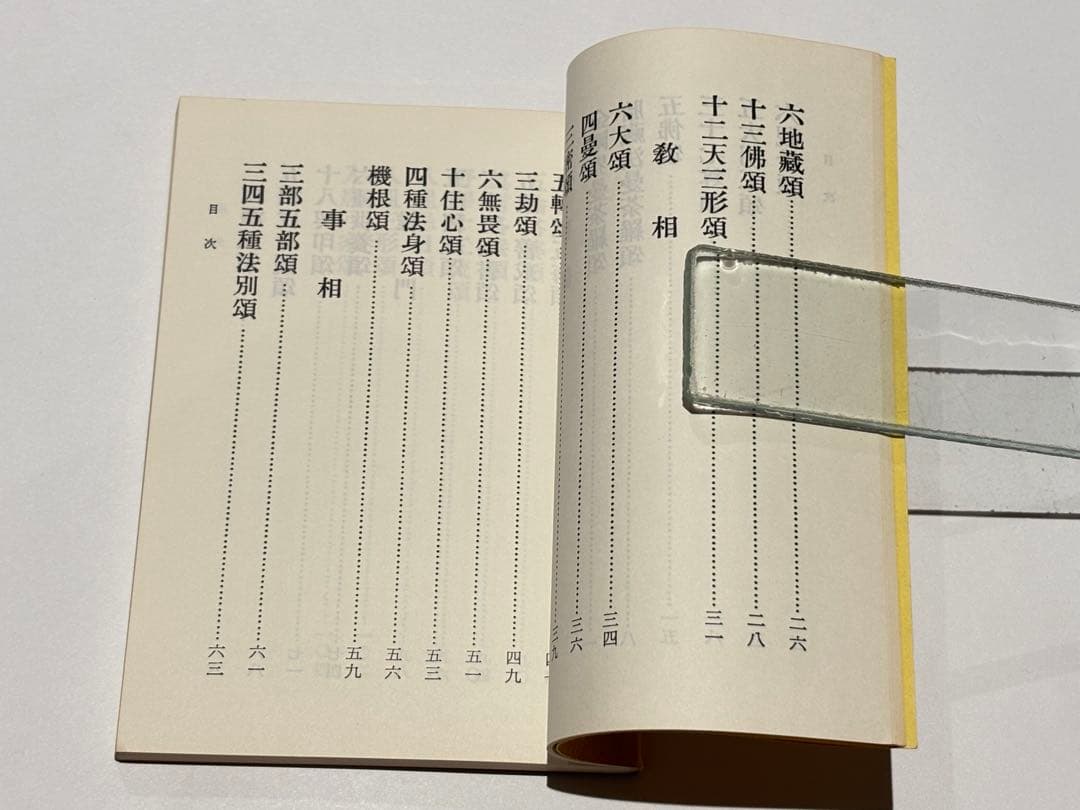 六地藏頌……二六
十三佛頌……二八
十二天三形頌……三一
敎相
六大頌……三四
四曼頌……三六
三密頌……三九
五轉頌……
三劫頌……四九
六無畏頌……五一
十住心頌……五三
四種法身頌……五六
機根頌……五九
事相
三部五部頌……六一
三四五種法別頌……六三
目次